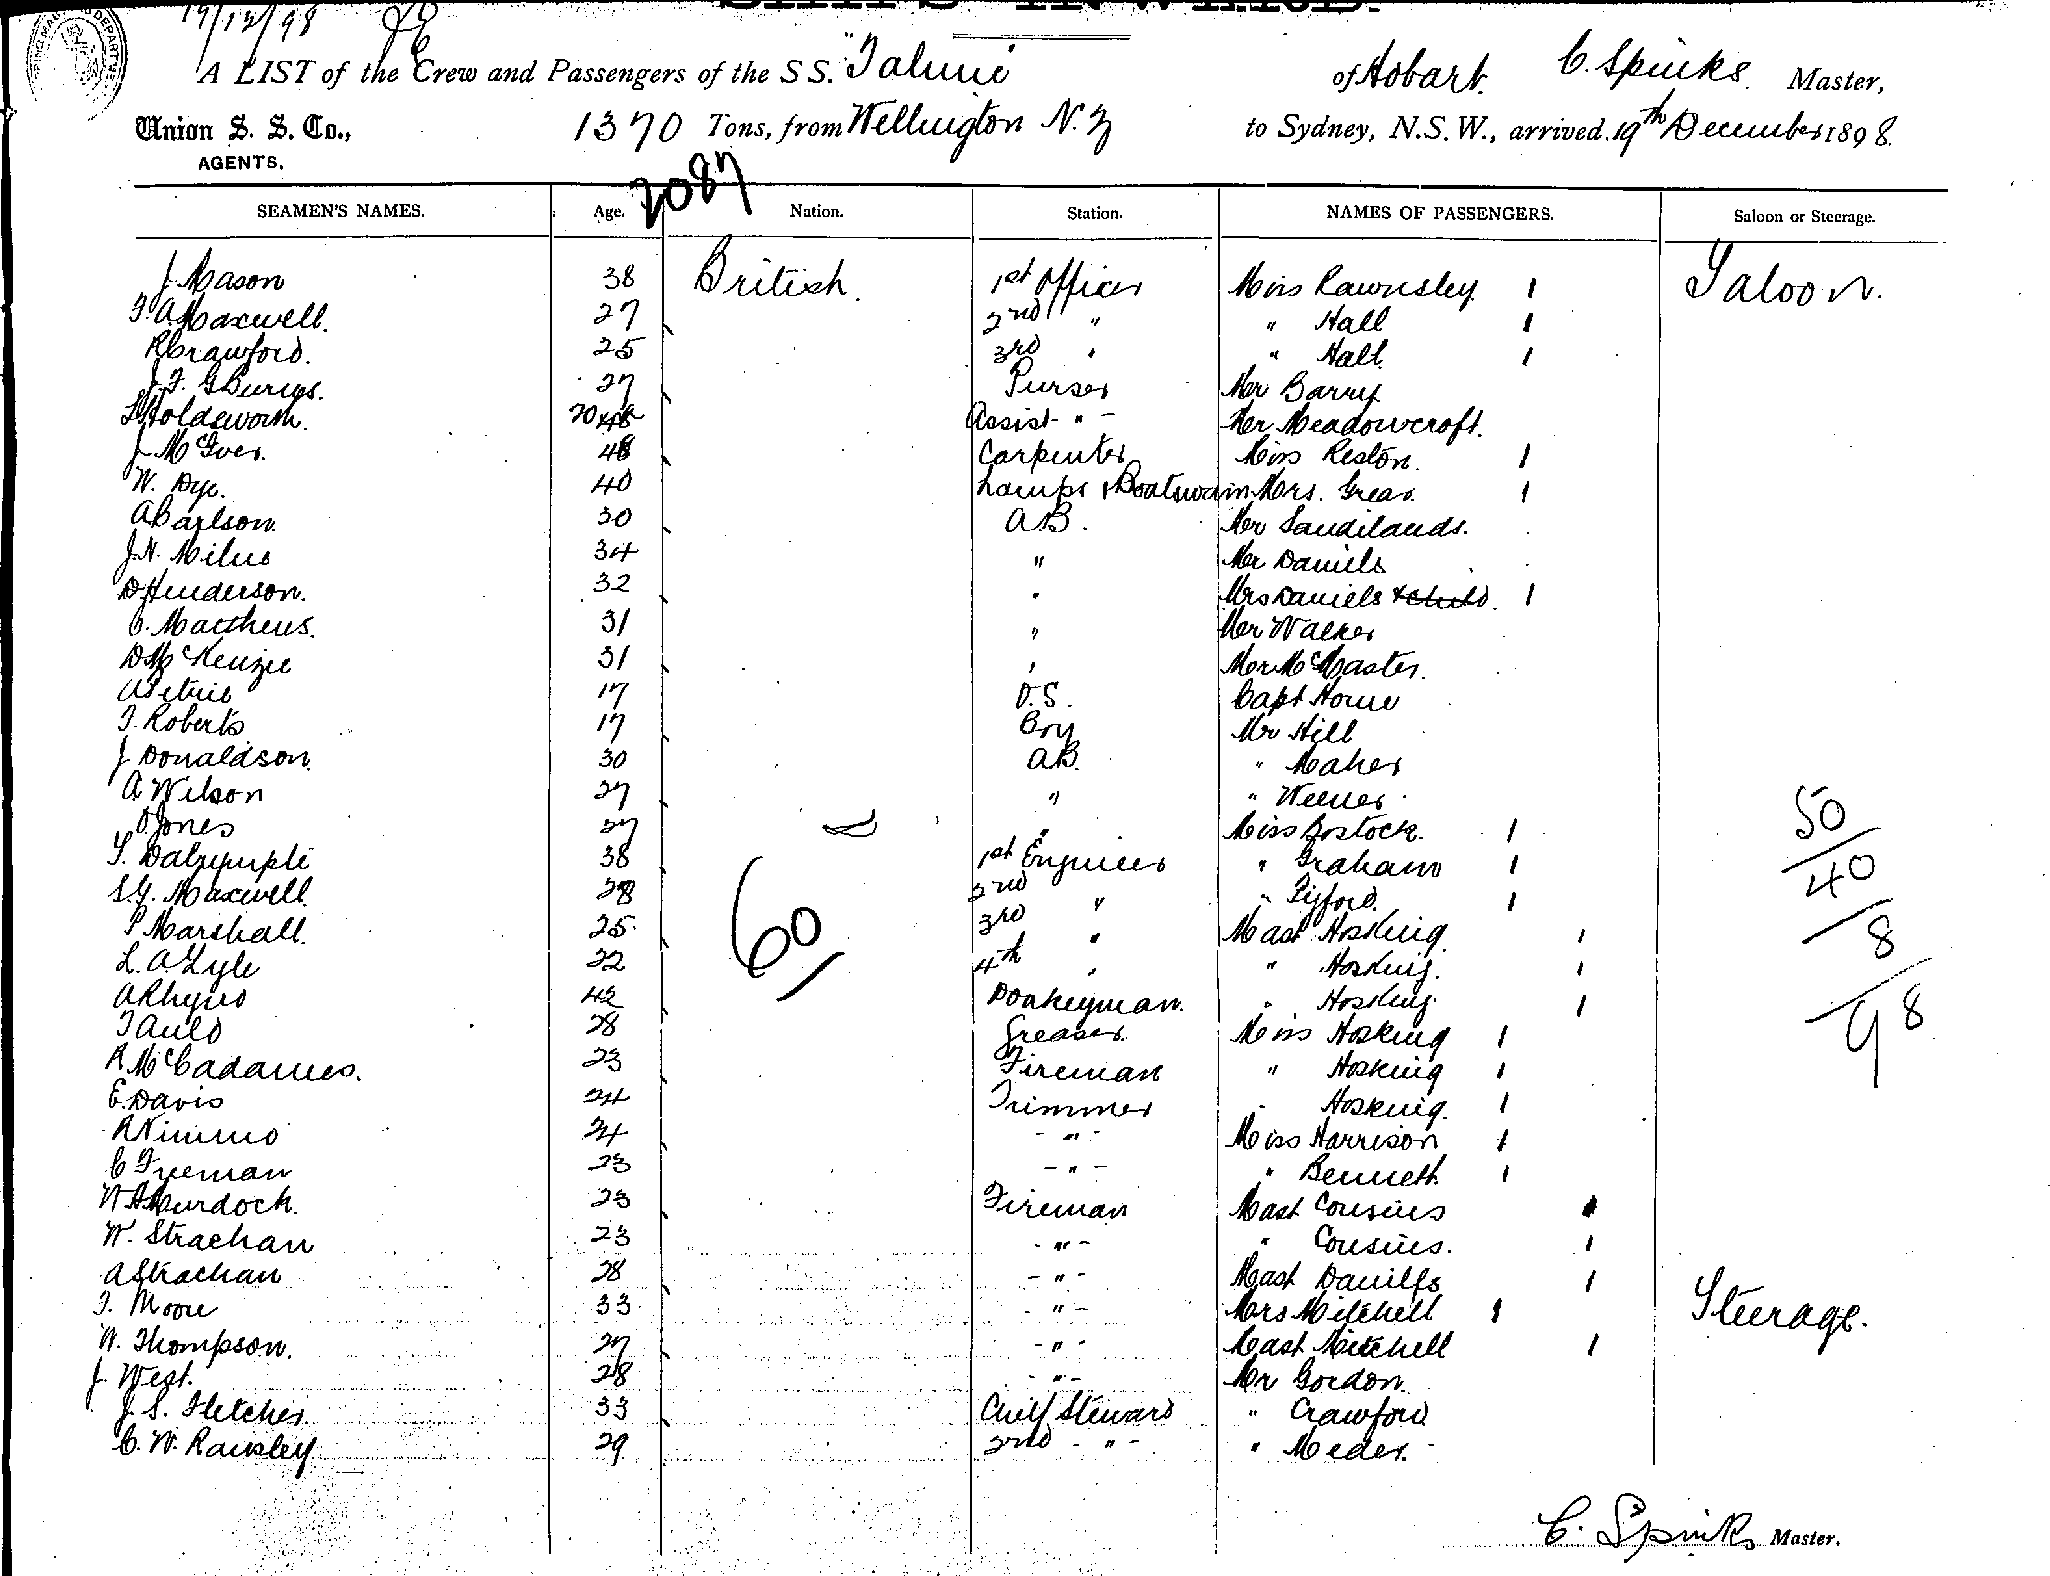 19/12/98
SHIPS INWARD.
A LIST of the Crew and Passengers of the SS. "Talune of Hobart. C. Spinks. Master,
Union S. S. Co., 1370 Tons, from Wellington N.Z to Sydney, N.S.W., arrived 19th December 1898.
AGENTS.
2087
SEAMEN'S NAMES. Age. Nation. Station. NAMES OF PASSENGERS. Saloon or Steerage.
J. Mason 38 British. 1st Officer Miss Rawnsley. 1 Saloon.
T. A. Maxwell. 27 2nd " " Hall 1
R Crawford. 25 3rd " " Hall. 1
J. F. G Burgs. 27 Purser Mr Barry
Holdsworth. 20 Assist " - Mr Meadowcroft.
J McGver. 48 Carpenter Miss Reston. 1
W. Dye. 40 Lamps & Boatswain Mrs. Grear. 1
A Carlson. 30 AB. Mr Sandilands.
J. N. Milne 34 " Mr Daniels
D Henderson. 32 " Mrs Daniels & child. 1
C. Matthews. 31 " Mr Walker
D McKenzie 31 " Mr McMaster.
A Petrie 17 O.S. Capt Horne
T. Roberts 17 Boy Mr Hill
J Donaldson. 30 AB. " Maher
A Wilson 27 " "
O Jones 27 " Miss Bostock. 1
T. Dalrymple 38 1st Engineer " Graham 1
S. G. Maxwell. 28 2nd " " 1
P Marshall. 25 3rd " Mast Hosking. 1
L. A. Lyle 22 4th " " Hosking. 1
A Rhynd 42 Donkeyman. " Hosking 1
T Auld 28 Greaser. Miss Hosking 1
R. McCadames. 23 Fireman " Hosking 1
E. Davis 24 Trimmer " Hosking. 1
R Nimmo 24 - " - Miss Harrison 1
C Freeman 23 - " - " Bennett. 1
W A Murdock. 23 Fireman Mast Cousins 1
W. Strachan 23 - " - " Cousins. 1
A Strachan 28 - " - Mast Daniells 1
T. Moore 33 - " - Mrs Mitchell 1 Steerage.
W. Thompson. 27 - " - Mast Mitchell 1
J. West. 28 - " - Mr Gordon
J. S. Fletcher 33 Chief Steward " Crawford
C. W. Rawsley 29 2nd - " - " Meder.
60/
50/
40
/8
/98
C. Spinks Master.